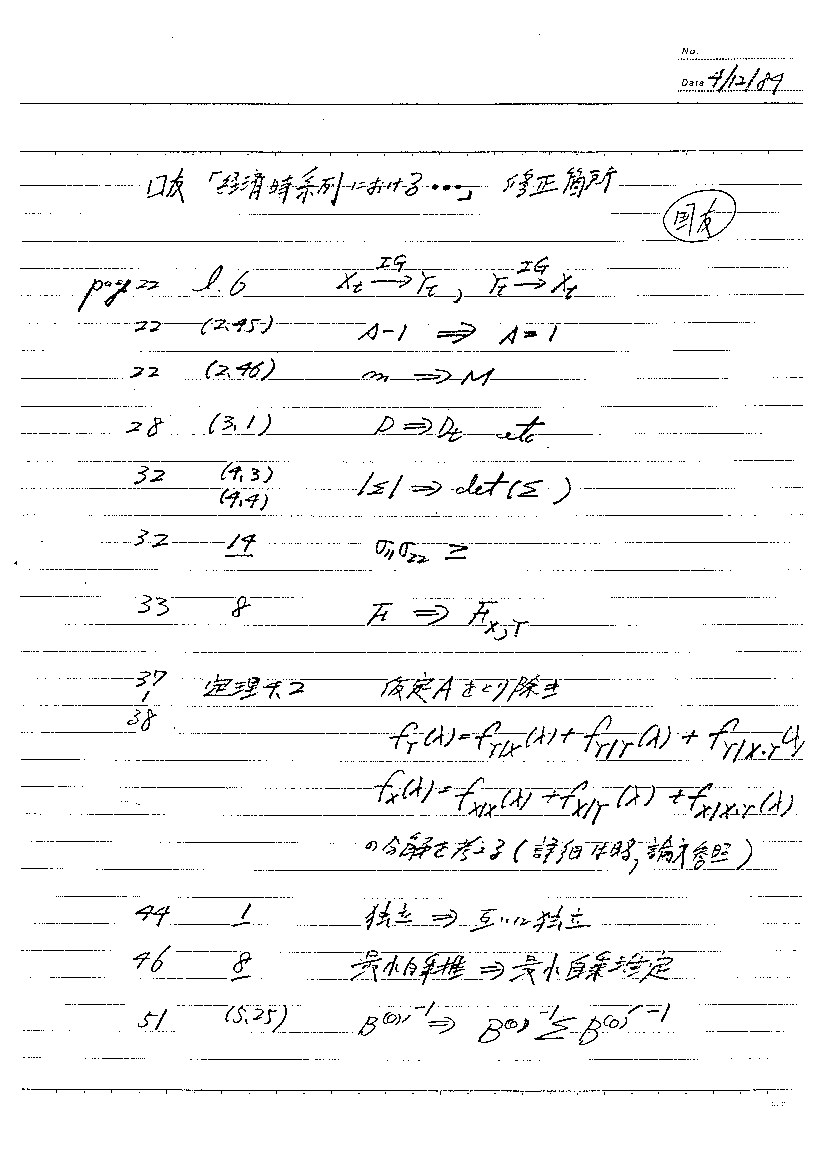 No.
Date 4/12/84
国友「経済時系列における・・・」 修正箇所
国友
page 22 l.6 Xt IG→ Yt, Yt IG→ Xt
22 (2.45) A-1 ⇒ A=1
22 (2.46) m ⇒ M
28 (3.1) D ⇒ Dt etc
32 (4.3) (4.4) |Σ| ⇒ det(Σ )
32 14 σ11σ22 ≥
33 8 F ⇒ FX,Y
37 定理4.2 仮定Aをとり除き
38 fY(λ)=fY|X(λ)+fY|Y(λ)+fY|X·Y(λ)
fX(λ)=fX|X(λ)+fX|Y(λ)+fX|X·Y(λ)
の分解を考える(詳細は略,論文参照)
44 1 独立 ⇒ 互いに独立
46 8 最小自乗推 ⇒ 最小自乗推定
51 (5.25) B(0)'-1 ⇒ B(0)-1ΣB(0)'-1